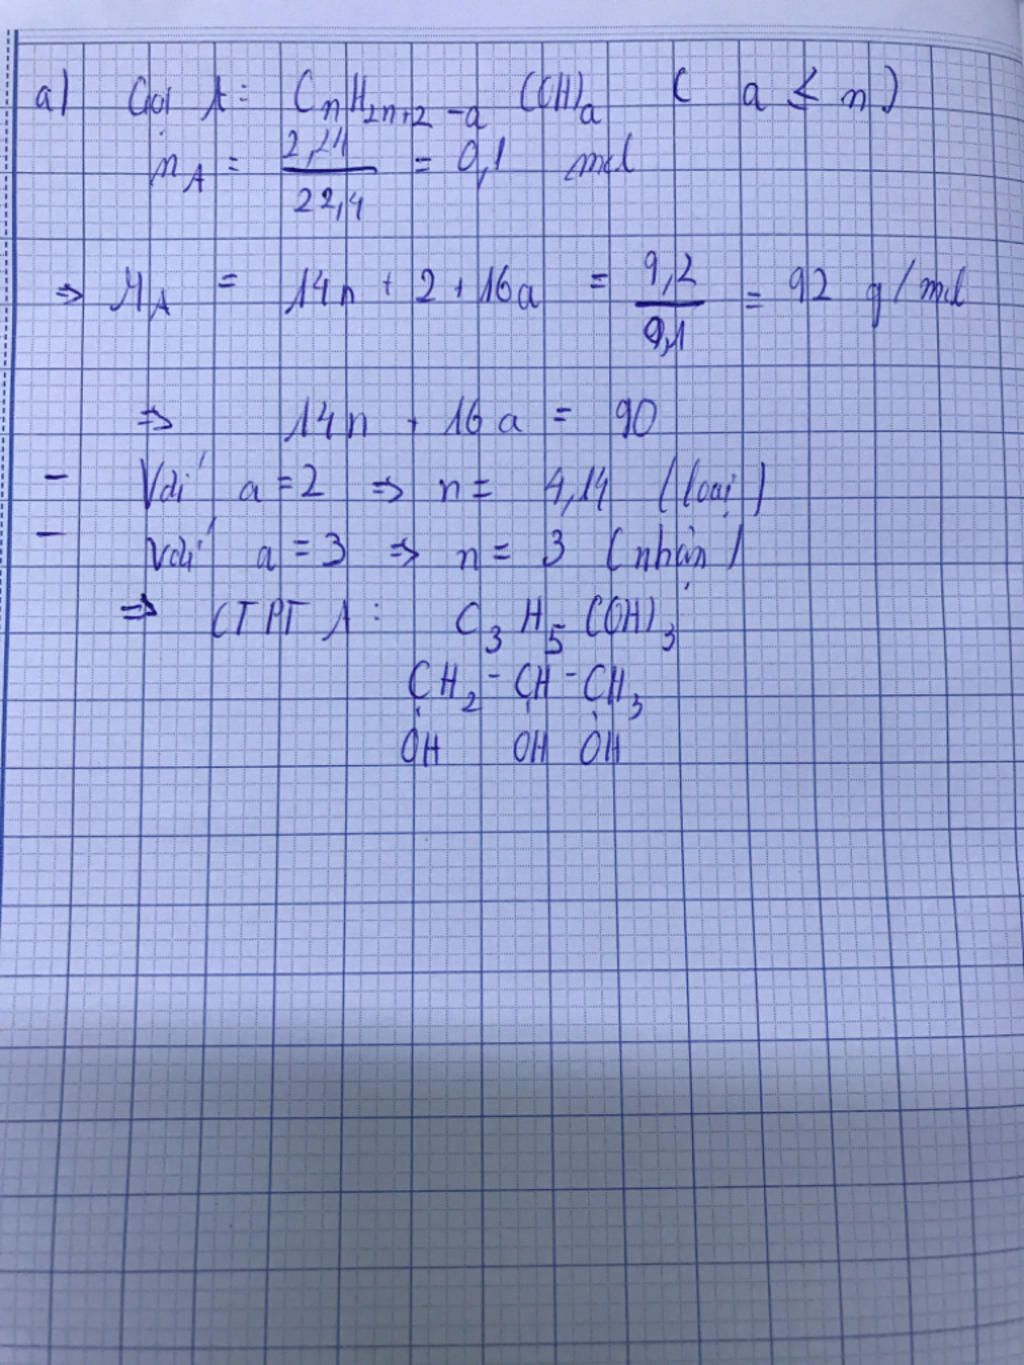 a) Gọi A: CnH2n+2-a (OH)a ( a ≤ n)
nA = 2,24/22,4 = 0,1 mol
⇒ MA = 14n + 2 + 16a = 9,2/0,1 = 92 g/mol
⇒ 14n + 16a = 90
- Với a = 2 ⇒ n = 4,14 (loại)
- Với a = 3 ⇒ n = 3 (nhận)
⇒ CTPT A: C3H5(OH)3
CH2 - CH - CH3
OH OH OH